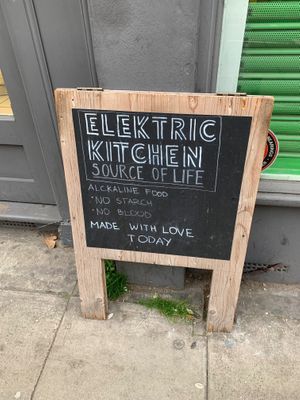 ELEKTRIC
KITCHEN
SOURCE OF LIFE
ALCKALINE FOOD
•NO STARCH
•NO BLOOD
MADE WITH LOVE
TODAY